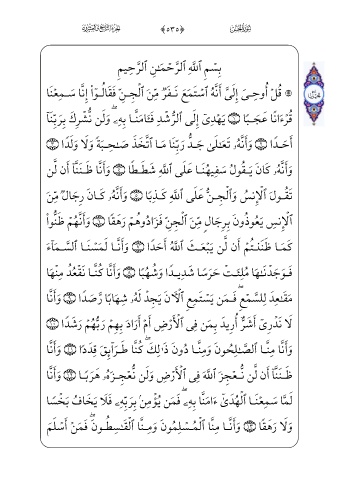 سُورَةُ الجِنِّ ﴿٥٣٥﴾ الجُزءُ التَّاسِعُ وَالعِشرُونَ
بِسْمِ ٱللَّهِ ٱلرَّحْمَـٰنِ ٱلرَّحِيمِ
۞ قُلْ أُوحِىَ إِلَىَّ أَنَّهُ ٱسْتَمَعَ نَفَرٌ مِّنَ ٱلْجِنِّ فَقَالُوٓا۟ إِنَّا سَمِعْنَا
قُرْءَانًا عَجَبًا ۝ يَهْدِىٓ إِلَى ٱلرُّشْدِ فَـَٔامَنَّا بِهِۦ ۖ وَلَن نُّشْرِكَ بِرَبِّنَآ
أَحَدًا ۝ وَأَنَّهُۥ تَعَـٰلَىٰ جَدُّ رَبِّنَا مَا ٱتَّخَذَ صَـٰحِبَةً وَلَا وَلَدًا ۝
وَأَنَّهُۥ كَانَ يَقُولُ سَفِيهُنَا عَلَى ٱللَّهِ شَطَطًا ۝ وَأَنَّا ظَنَنَّآ أَن لَّن
تَقُولَ ٱلْإِنسُ وَٱلْجِنُّ عَلَى ٱللَّهِ كَذِبًا ۝ وَأَنَّهُۥ كَانَ رِجَالٌ مِّنَ
ٱلْإِنسِ يَعُوذُونَ بِرِجَالٍ مِّنَ ٱلْجِنِّ فَزَادُوهُمْ رَهَقًا ۝ وَأَنَّهُمْ ظَنُّوا۟
كَمَا ظَنَنتُمْ أَن لَّن يَبْعَثَ ٱللَّهُ أَحَدًا ۝ وَأَنَّا لَمَسْنَا ٱلسَّمَآءَ
فَوَجَدْنَـٰهَا مُلِئَتْ حَرَسًا شَدِيدًا وَشُهُبًا ۝ وَأَنَّا كُنَّا نَقْعُدُ مِنْهَا
مَقَـٰعِدَ لِلسَّمْعِ ۖ فَمَن يَسْتَمِعِ ٱلْـَٔانَ يَجِدْ لَهُۥ شِهَابًا رَّصَدًا ۝ وَأَنَّا
لَا نَدْرِىٓ أَشَرٌّ أُرِيدَ بِمَن فِى ٱلْأَرْضِ أَمْ أَرَادَ بِهِمْ رَبُّهُمْ رَشَدًا ۝
وَأَنَّا مِنَّا ٱلصَّـٰلِحُونَ وَمِنَّا دُونَ ذَٰلِكَ ۖ كُنَّا طَرَآئِقَ قِدَدًا ۝ وَأَنَّا
ظَنَنَّآ أَن لَّن نُّعْجِزَ ٱللَّهَ فِى ٱلْأَرْضِ وَلَن نُّعْجِزَهُۥ هَرَبًا ۝ وَأَنَّا
لَمَّا سَمِعْنَا ٱلْهُدَىٰٓ ءَامَنَّا بِهِۦ ۖ فَمَن يُؤْمِنۢ بِرَبِّهِۦ فَلَا يَخَافُ بَخْسًا
وَلَا رَهَقًا ۝ وَأَنَّا مِنَّا ٱلْمُسْلِمُونَ وَمِنَّا ٱلْقَـٰسِطُونَ ۖ فَمَنْ أَسْلَمَ